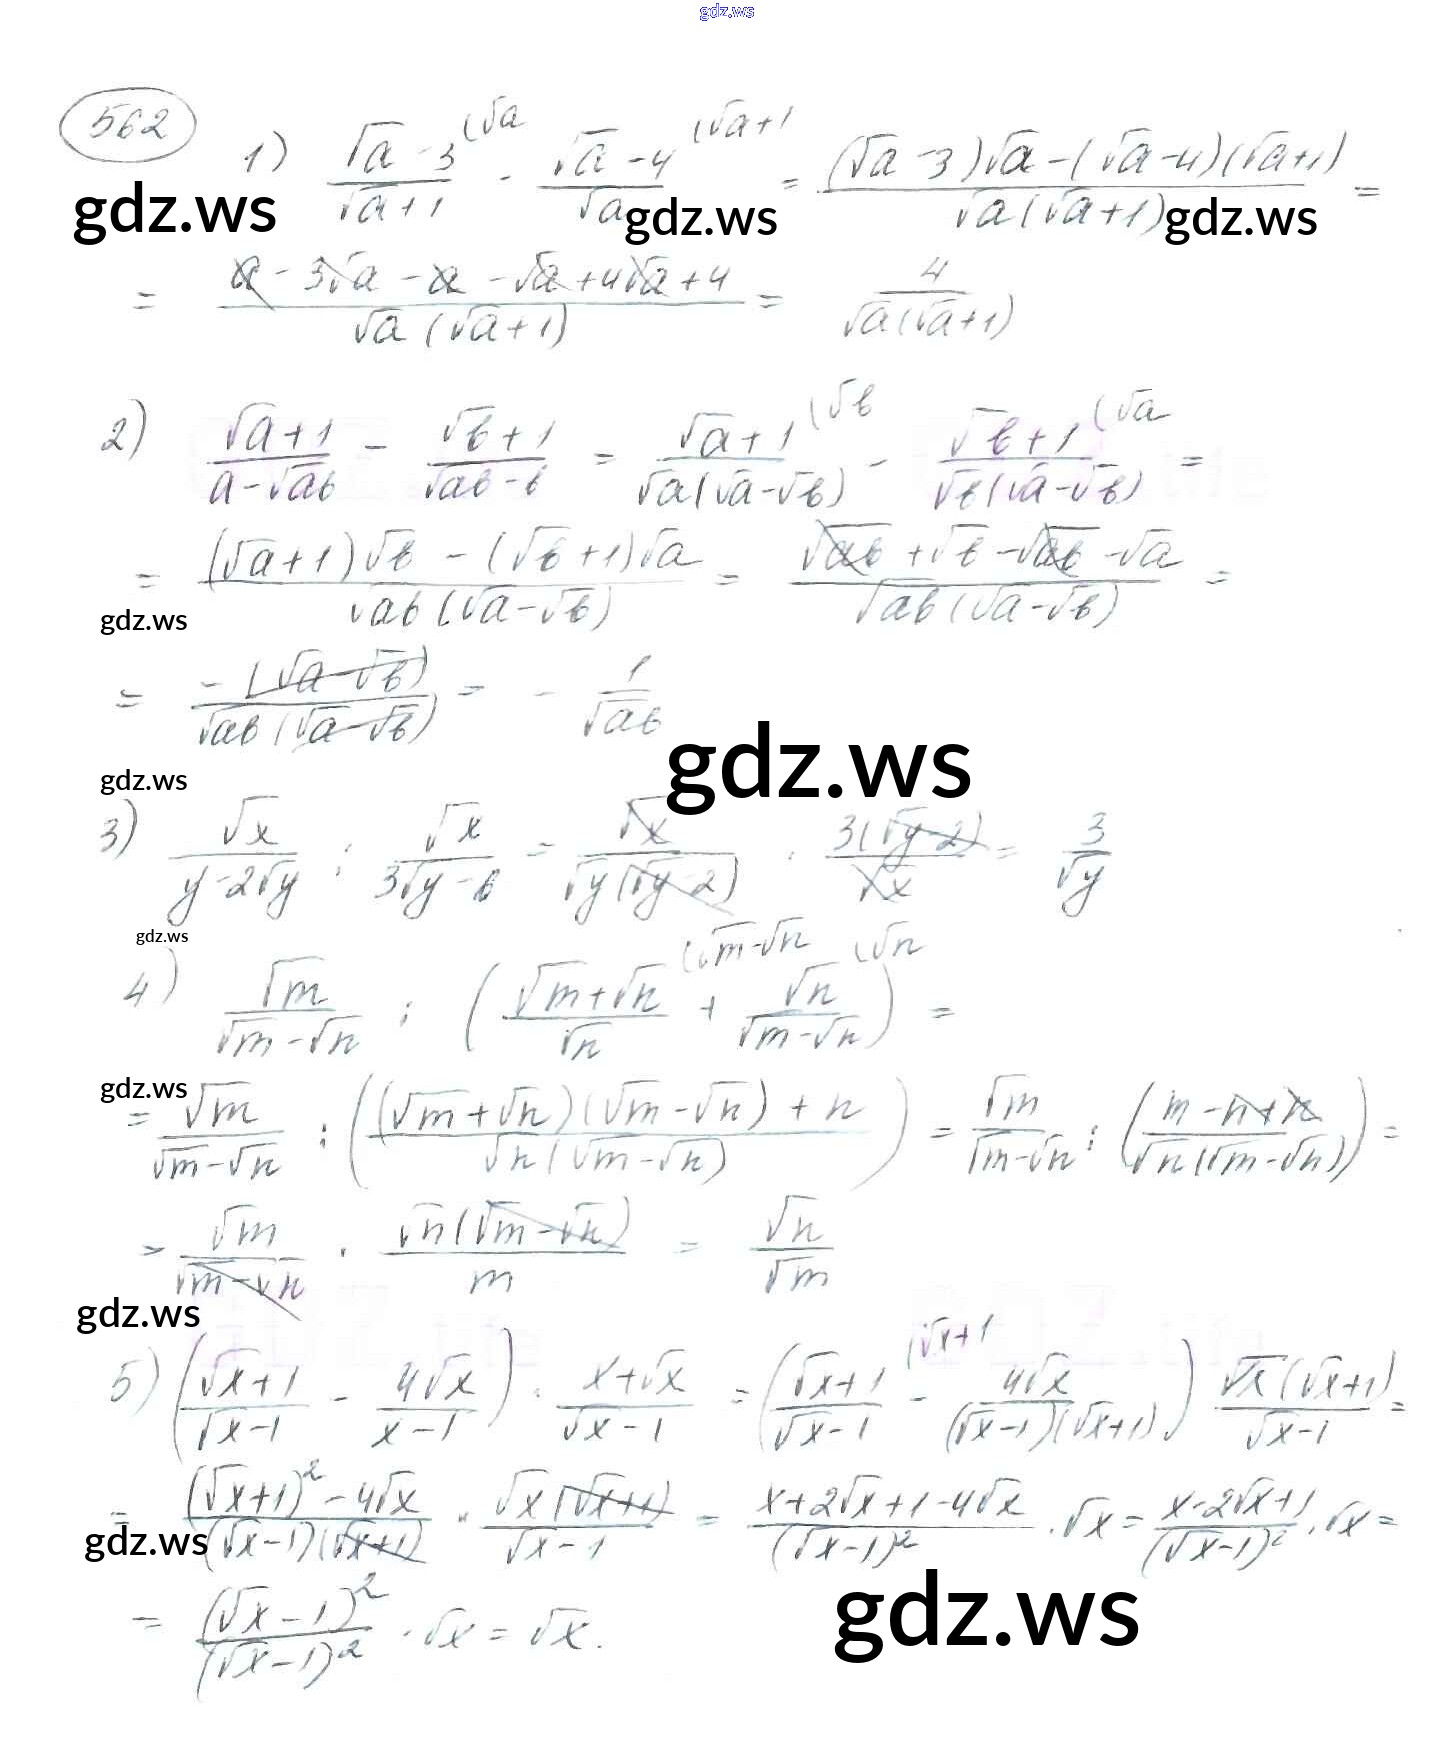 gdz.ws
562
1) (√a-3)/(√a+1) (√a - (√a-4)/√a (√a+1 = ((√a-3)√a-(√a-4)(√a+1))/(√a(√a+1)) =
gdz.ws gdz.ws gdz.ws
= (a-3√a-a-√a+4√a+4)/(√a(√a+1)) = 4/(√a(√a+1))
2) (√a+1)/(a-√ab) - (√b+1)/(√ab-b) = (√a+1)/(√a(√a-√b)) (√b - (√b+1)/(√b(√a-√b)) (√a =
= ((√a+1)√b-(√b+1)√a)/(√ab(√a-√b)) = (√ab+√b-√ab-√a)/(√ab(√a-√b)) =
gdz.ws
= -(√a-√b)/(√ab(√a-√b)) = - 1/√ab
gdz.ws
gdz.ws
3) √x/(y-2√y) : √x/(3√y-6) = √x/(√y(√y-2)) · 3(√y-2)/√x = 3/√y
gdz.ws
4) √m/(√m-√n) : ((√m+√n)/√n (√m-√n + √n/(√m-√n) (√n) =
gdz.ws
= √m/(√m-√n) : (((√m+√n)(√m-√n)+n)/(√n(√m-√n))) = √m/(√m-√n) : ((m-n+n)/(√n(√m-√n))) =
= √m/(√m-√n) · √n(√m-√n)/m = √n/√m
gdz.ws
5) ((√x+1)/(√x-1) - 4√x/(x-1)) · (x+√x)/(√x-1) = ((√x+1)/(√x-1) (√x+1 - 4√x/((√x-1)(√x+1))) √x(√x+1)/(√x-1) =
= ((√x+1)²-4√x)/((√x-1)(√x+1)) · √x(√x+1)/(√x-1) = (x+2√x+1-4√x)/(√x-1)² · √x = (x-2√x+1)/(√x-1)² · √x =
gdz.ws
gdz.ws
= (√x-1)²/(√x-1)² · √x = √x.